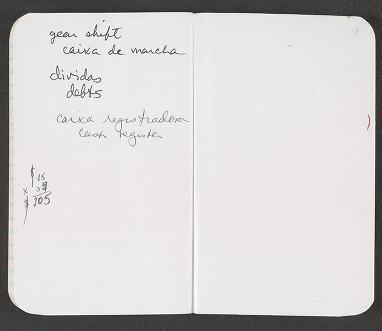 gear shift
caixa de marcha
dividas
debts
caixa registradora
cash register